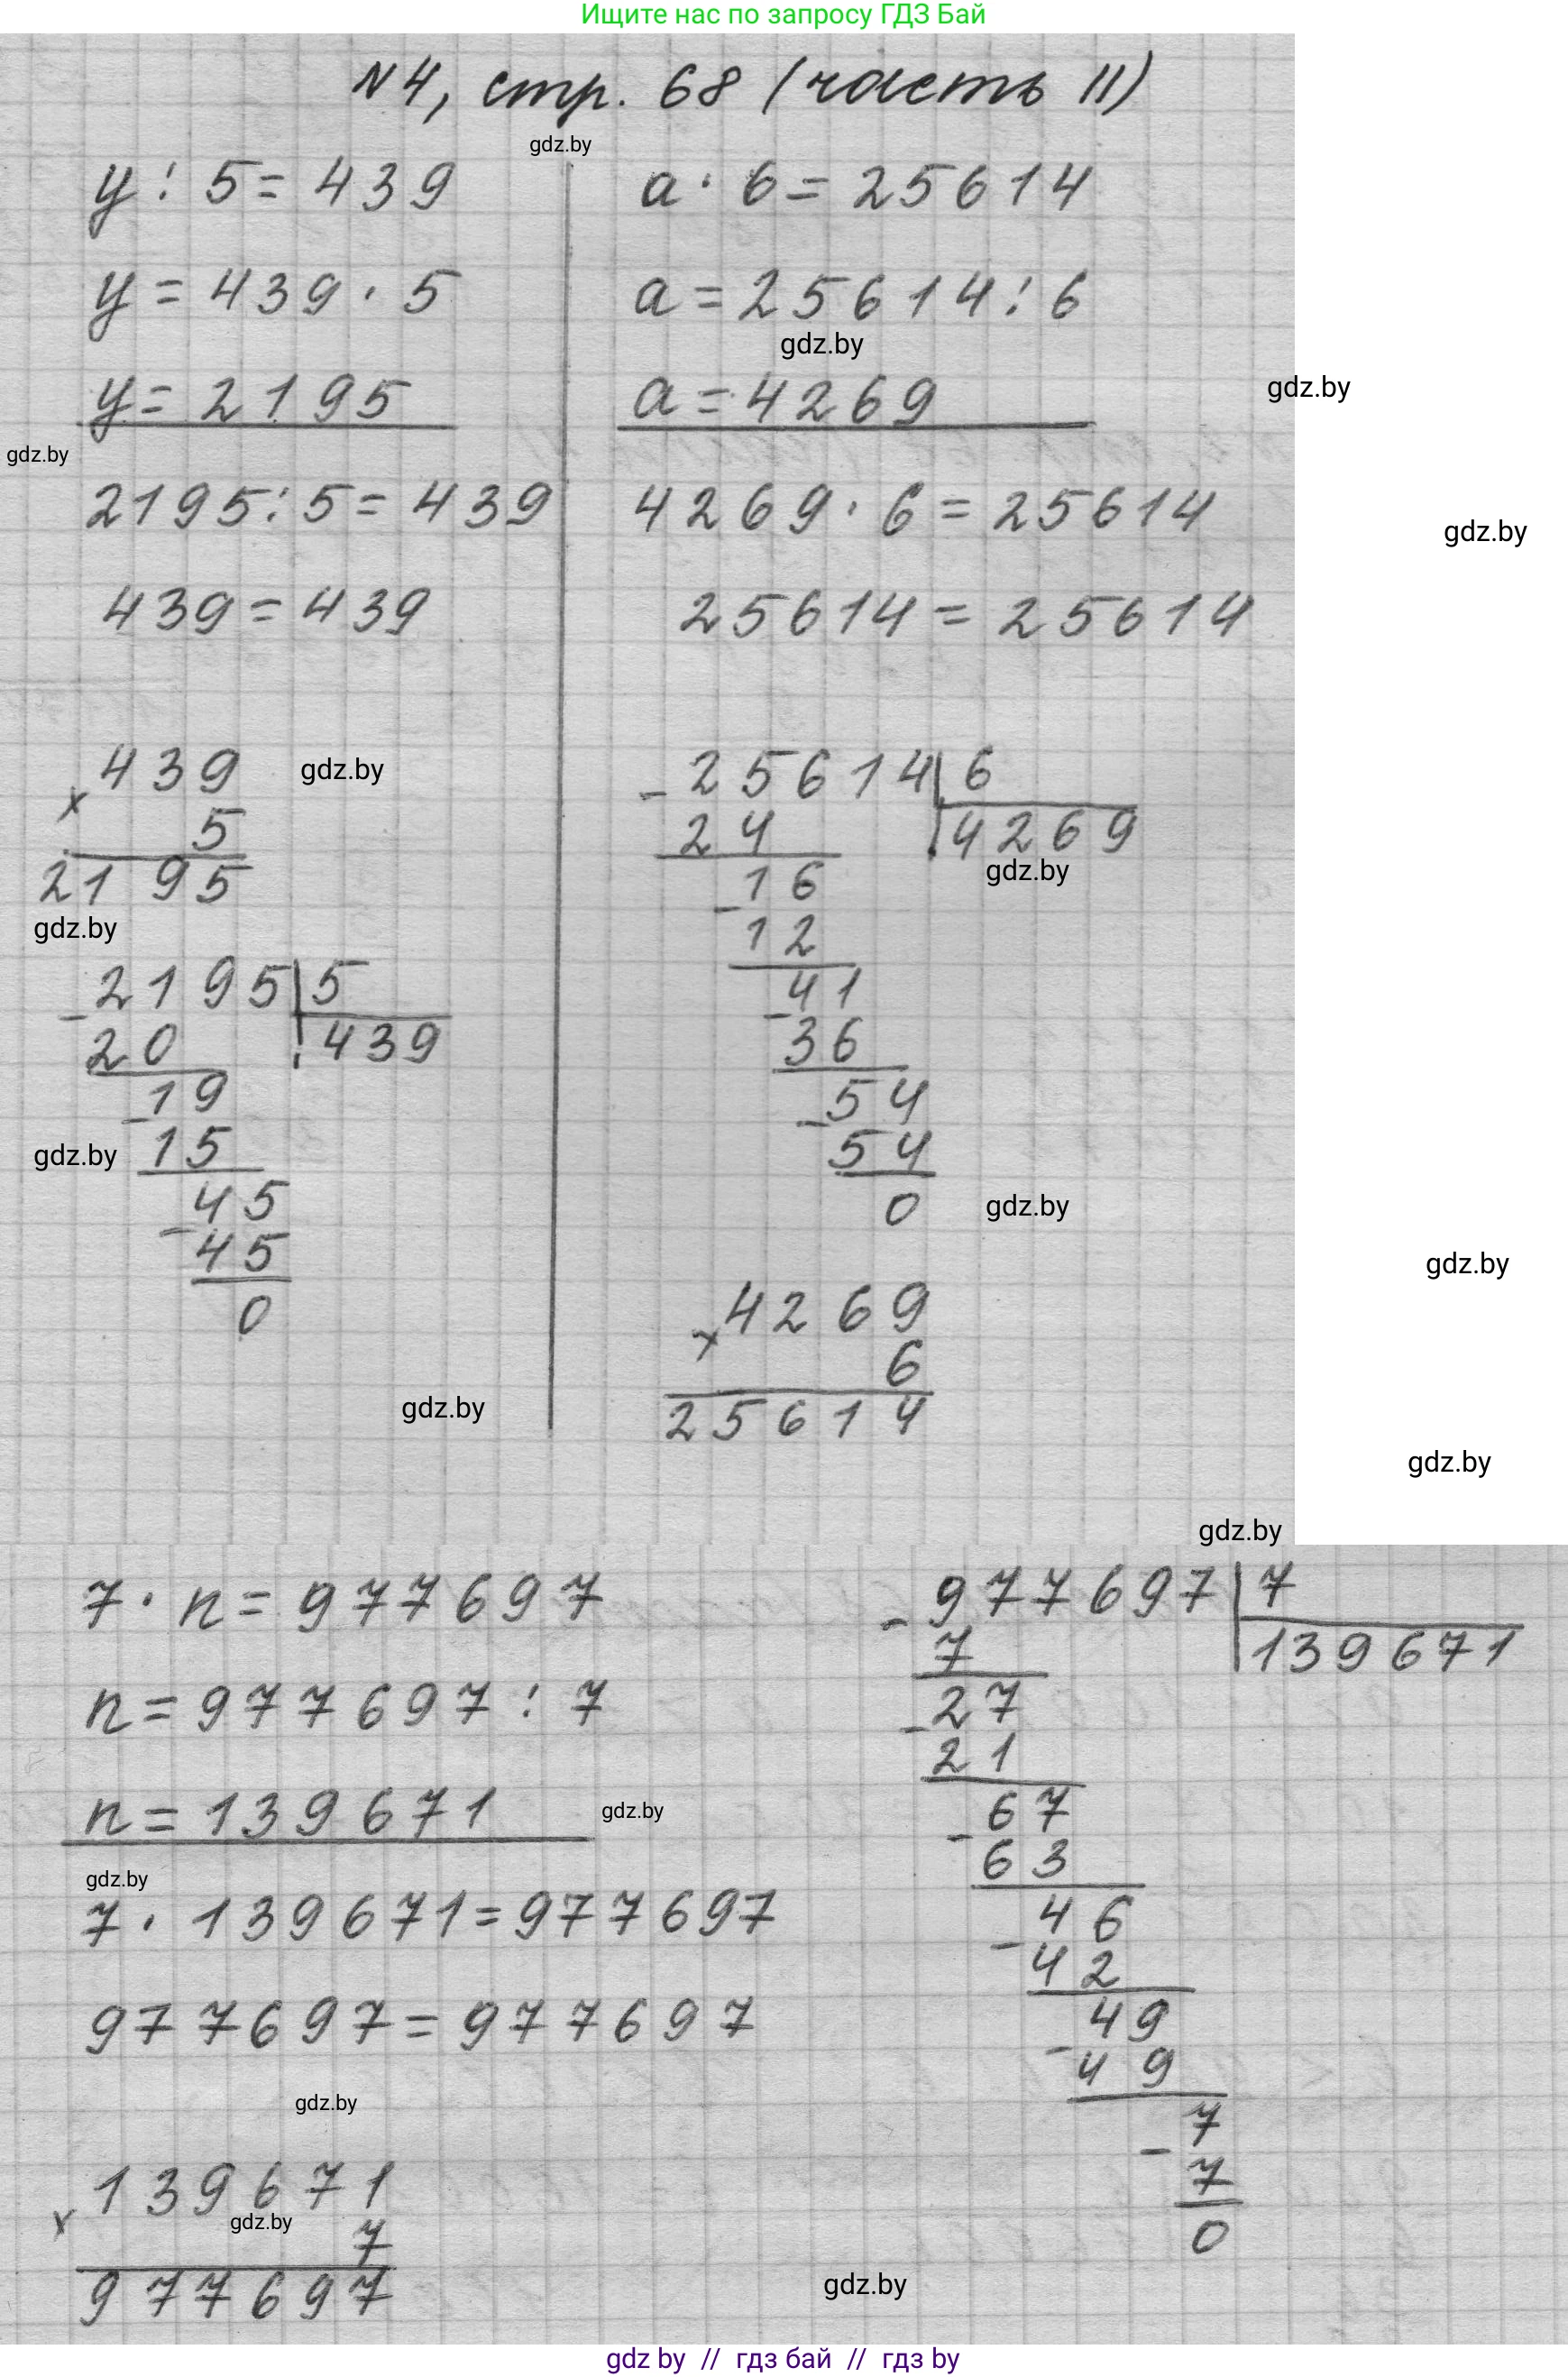 Ищите нас по запросу ГДЗ Бай
N4, стр. 68 (часть II)
gdz.by
y : 5 = 439
y = 439 · 5
y = 2195
gdz.by
2195 : 5 = 439
439 = 439
× 439
5
2195
gdz.by
gdz.by
- 2195 | 5
20 | 439
- 19
15
gdz.by
- 45
45
0
gdz.by
a · 6 = 25614
a = 25614 : 6
gdz.by
a = 4269
gdz.by
4269 · 6 = 25614
gdz.by
25614 = 25614
- 25614 | 6
24 | 4269
gdz.by
- 16
12
- 41
36
- 54
54
0
gdz.by
gdz.by
× 4269
6
25614
gdz.by
gdz.by
7 · n = 977697
n = 977697 : 7
n = 139671
gdz.by
gdz.by
7 · 139671 = 977697
977697 = 977697
gdz.by
× 139671
gdz.by
7
977697
- 977697 | 7
7 | 139671
- 27
21
- 67
63
- 46
42
- 49
49
- 7
7
0
gdz.by
gdz by // гдз бай // гдз by